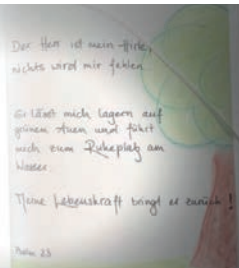 Der Herr ist mein Hirte,
nichts wird mir fehlen.
Er lässt mich lagern auf
grünen Auen und führt
mich zum Ruheplatz am
Wasser.
Meine Lebenskraft bringt er zurück!
Psalm 23